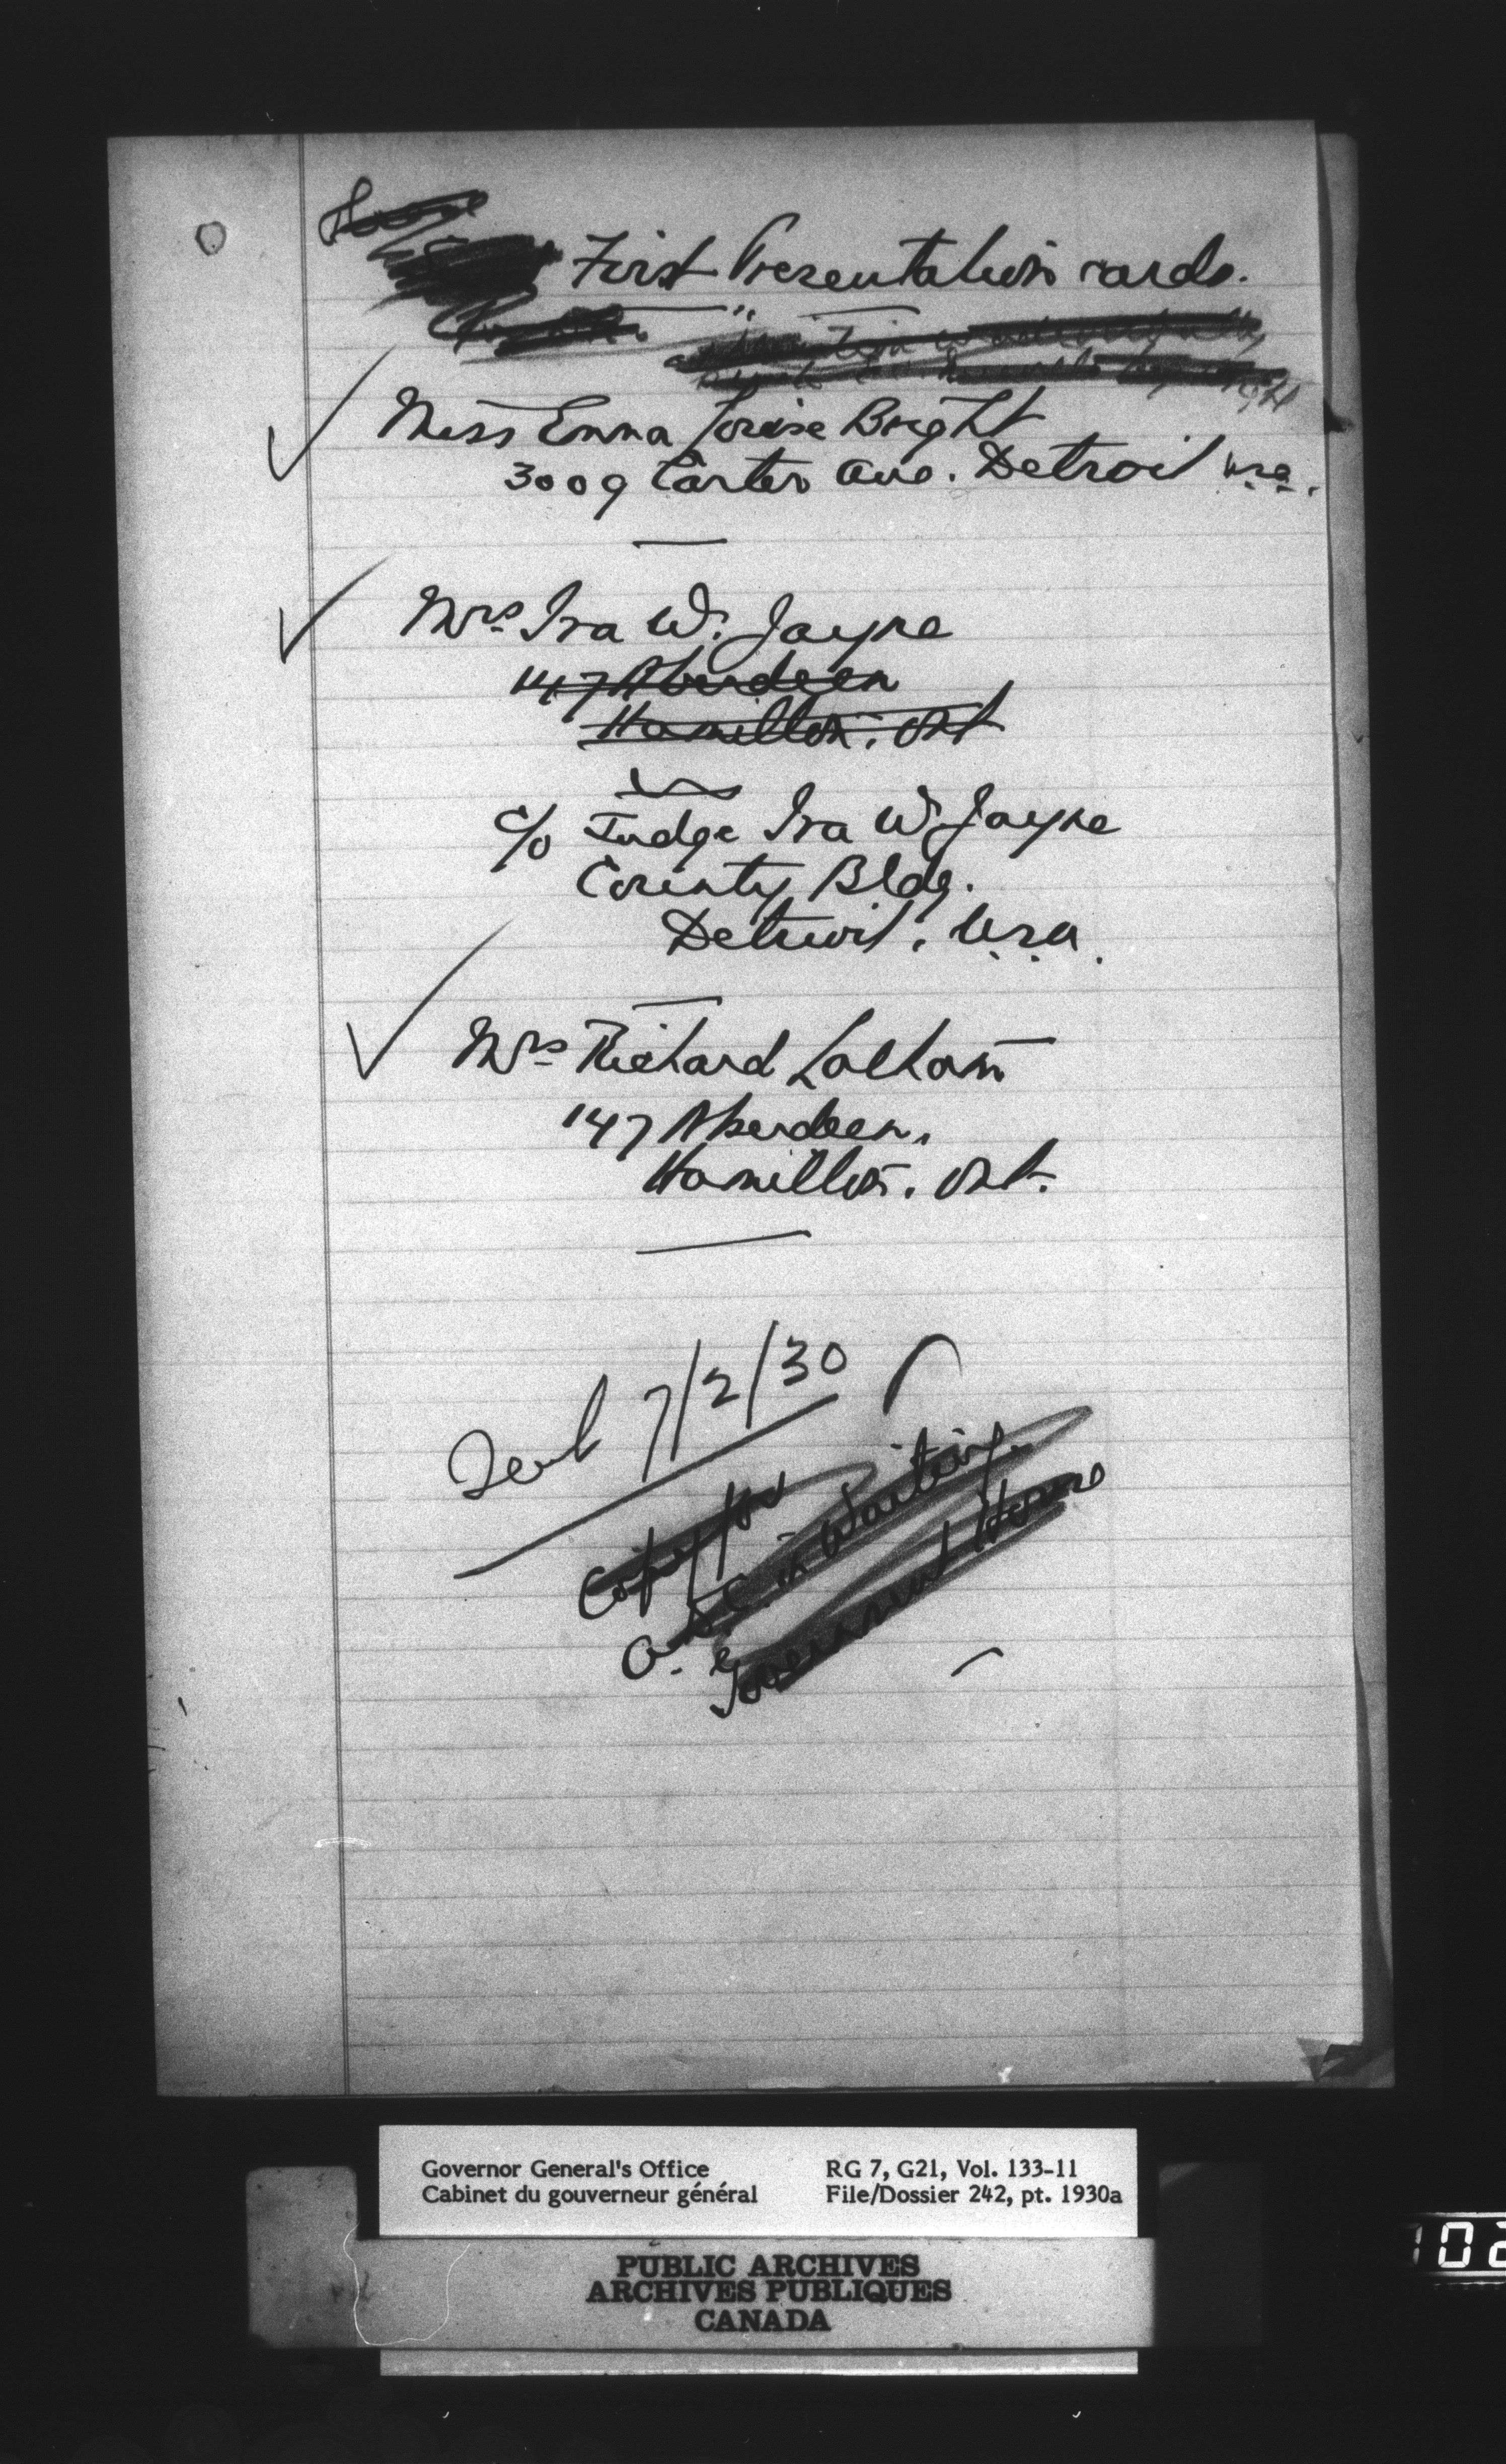 First Presentation cards.
"
Miss Enna Louise Bright
3009 Carter Ave. Detroit U.S.A.
Mrs Ira W. Jayne
147 Aberdeen
Hamilton. Ont
c/o Judge Ira W. Jayne
County Bldg.
Detroit. U.S.A.
Mrs Richard Latham
147 Aberdeen.
Hamilton. Ont.
Sent 7/2/30
Copy for
A.D.C. in Waiting
Government House
Governor General's Office
Cabinet du gouverneur général
RG 7, G21, Vol. 133-11
File/Dossier 242, pt. 1930a
PUBLIC ARCHIVES
ARCHIVES PUBLIQUES
CANADA
102